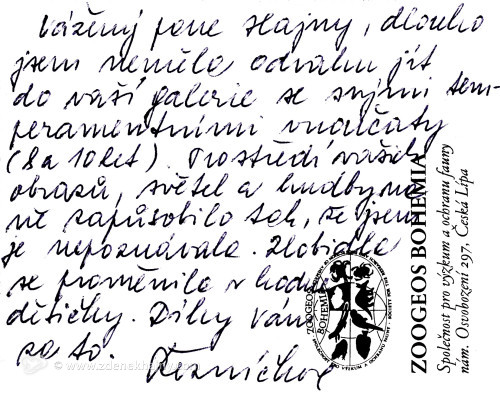 Vážený pane Hajny, dlouho
jsem neměla odvahu jít
do vaší galerie se svými tem-
peramentními vnoučaty
(8 a 10 let). Prostředí vašich
obrazů, světel a hudby na
ně zapůsobilo tak, že jsem
je nepoznávala. Zlobidla
se proměnila v hodné
dětičky. Díky Vám
za to.
ZOOGEOS BOHEMIA
Společnost pro výzkum a ochranu fauny
nám. Osvobození 297, Česká Lípa
ZOOGEOS
BOHEMIA